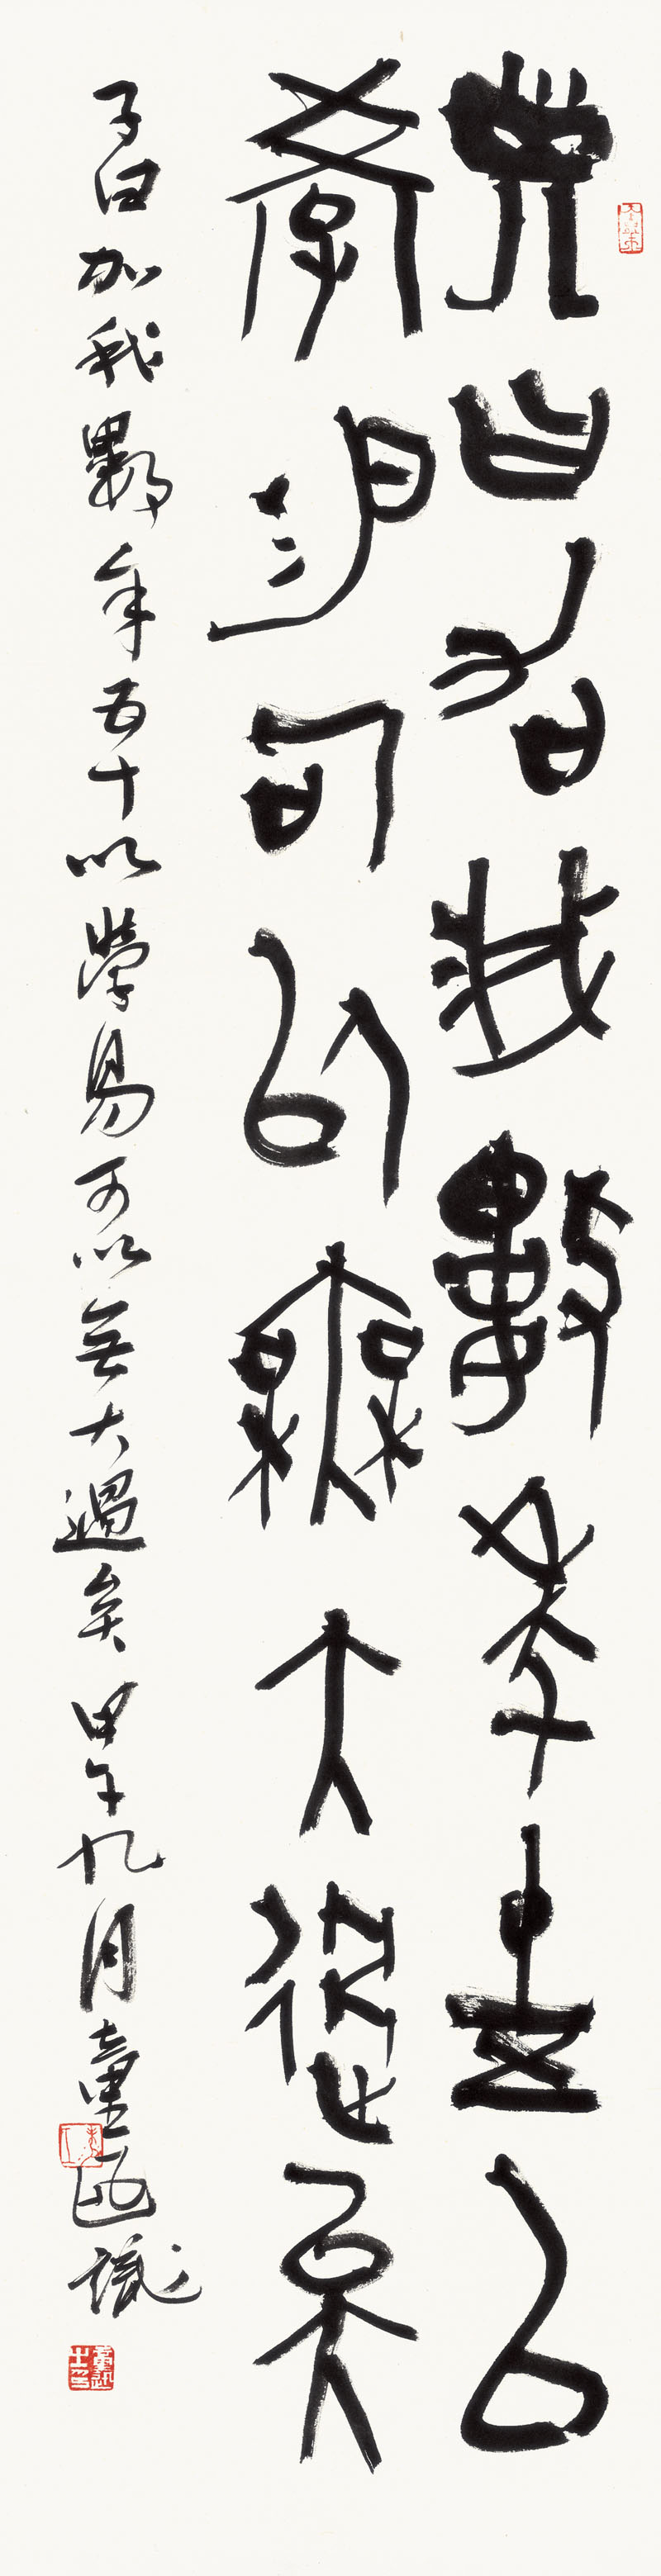 子曰加我數年五十以
學易可以無大過矣
子曰加我數年五十以學易可以無大過矣甲午九月童函識